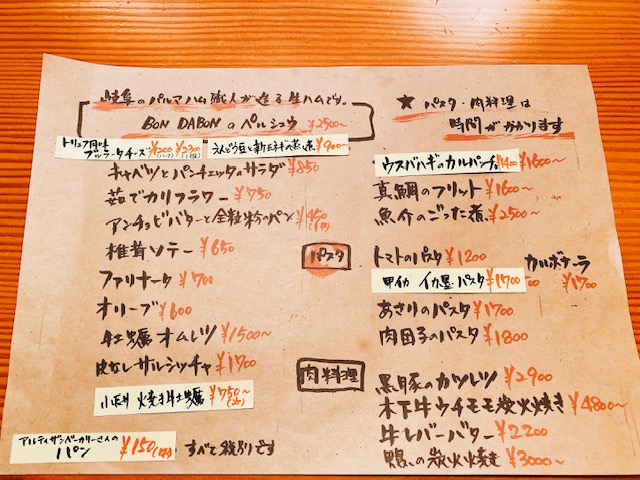 岐阜のパルマハム職人が造る生ハムです。
BON DABONのペルシュウ ¥2500~
トリュフ風味
ブッラータチーズ ¥1200 ¥2300
えんどう豆と新玉ネギの煮込 ¥900~
キャベツとパンチェッタのサラダ ¥850
茹でカリフラワー ¥750
アンチョビバターと全粒粉のパン ¥450
椎茸ソテー ¥650
ファリナータ ¥700
オリーブ ¥600
牡蠣オムレツ ¥1500~
皮なしサルシッチャ ¥1700
焼き牡蠣 ¥750~
アルティザンベーカリーさんの
パン ¥150
すべて税別です
★パスタ・肉料理は
時間がかかります
ウスバハギのカルパッチョ ¥1400 ¥1600~
真鯛のフリット ¥1600~
魚介のごった煮 ¥2500~
パスタ
トマトのパスタ ¥1200
カルボナーラ
¥1700
甲イカ イカ墨パスタ ¥1700
あさりのパスタ ¥1700
肉団子のパスタ ¥1800
肉料理
黒豚のカツレツ ¥2900
木下牛ウチモモ炭火焼き ¥4800~
牛レバーバター ¥2200
鴨の炭火焼き ¥3000~